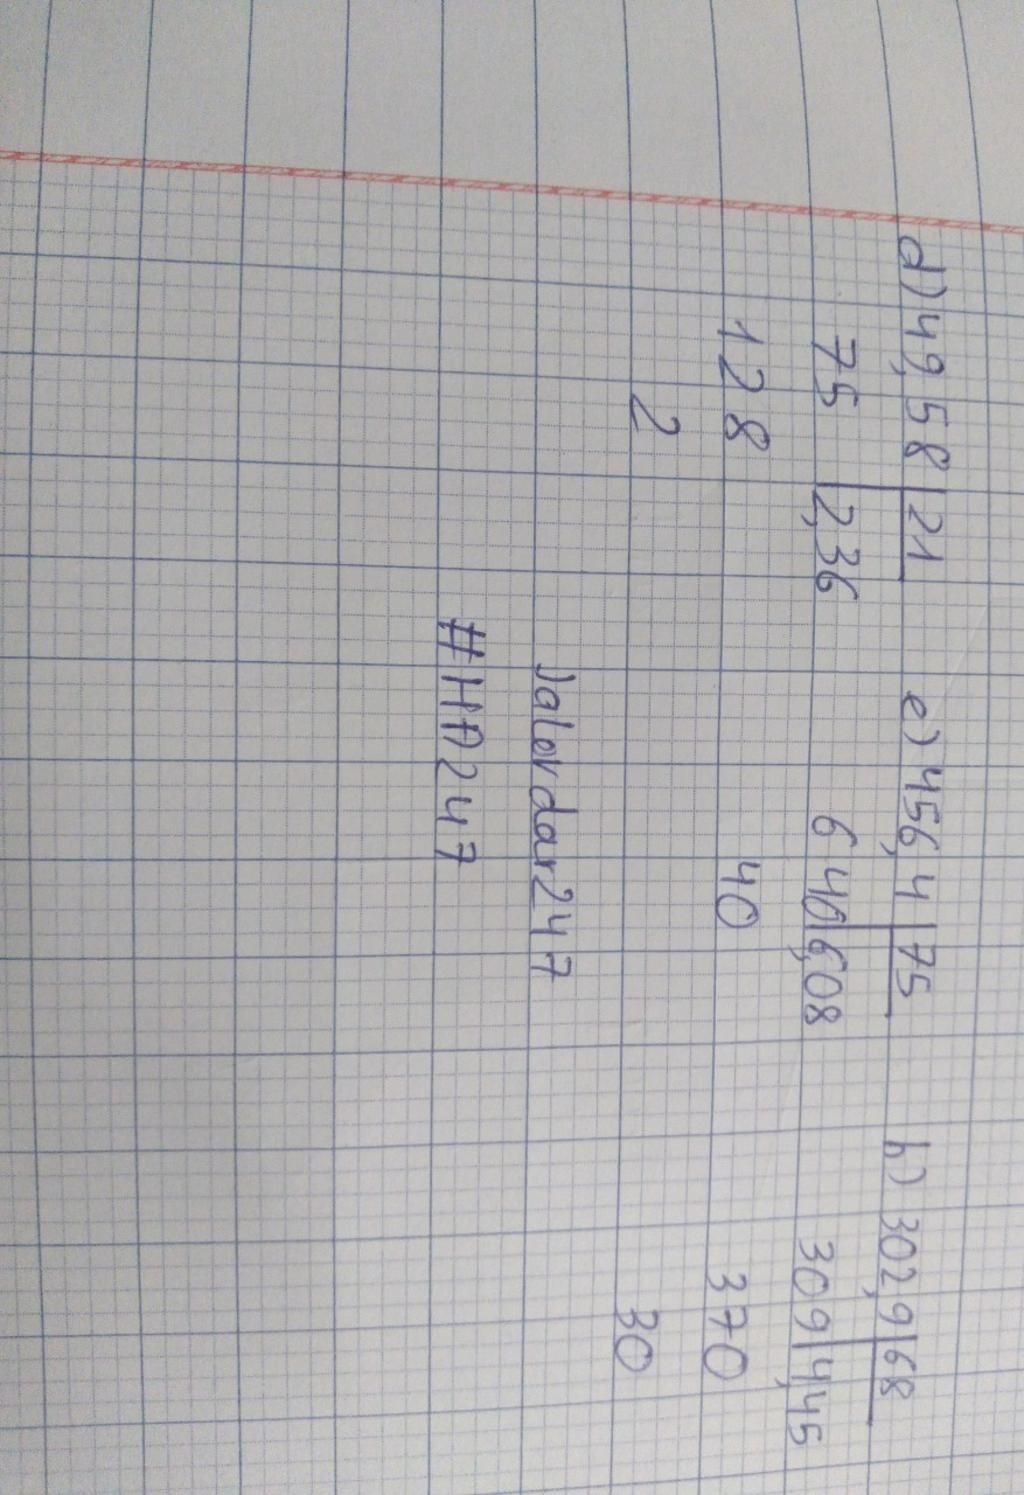 d) 49,58 | 21 e) 456,4 | 75 h) 302,9 | 68
75 2,36 6 40 | 6,08 309 | 4,45
128 40 370
2 30
Jalovdar247
#HA247